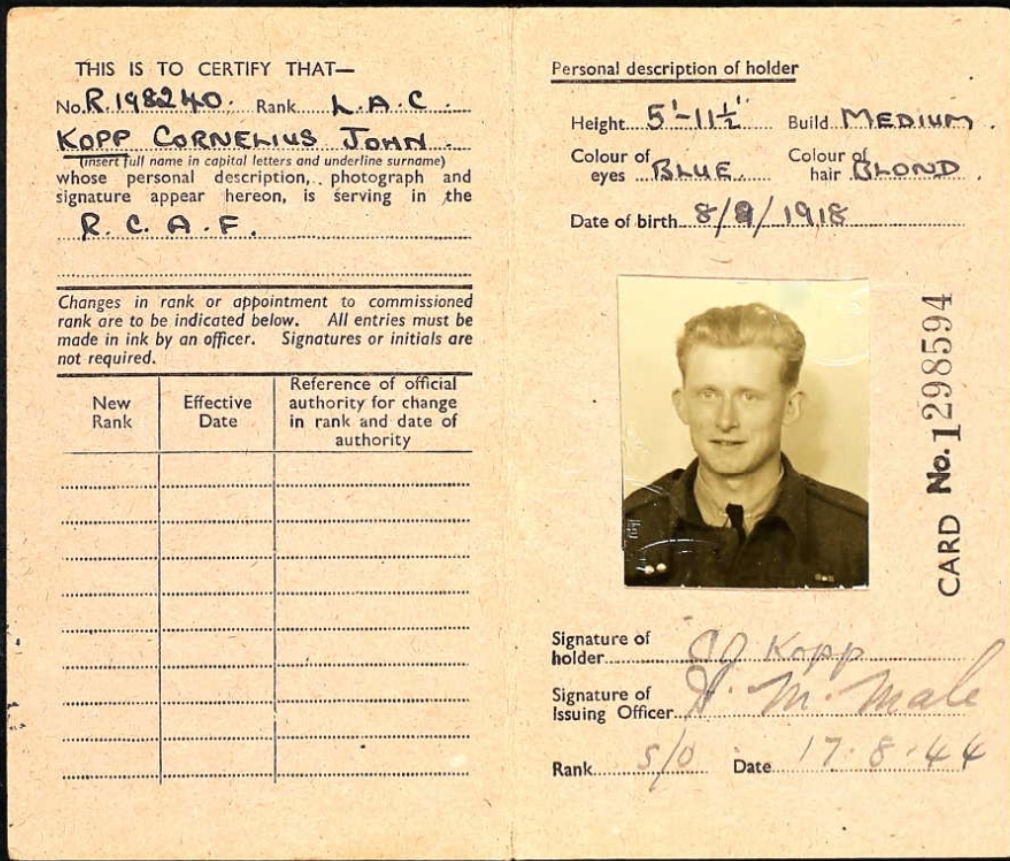 THIS IS TO CERTIFY THAT—
No. R.198240. Rank L.A.C.
KOPP CORNELIUS JOHN
(insert full name in capital letters and underline surname)
whose personal description, photograph and
signature appear hereon, is serving in the
R.C.A.F.
Changes in rank or appointment to commissioned
rank are to be indicated below. All entries must be
made in ink by an officer. Signatures or initials are
not required.
New Rank
Effective Date
Reference of official authority for change in rank and date of authority
Personal description of holder
Height 5'-11½" Build MEDIUM.
Colour of eyes BLUE. Colour of hair BLOND.
Date of birth 8/ /1918
CARD No. 1298594
Signature of holder CJ Kopp
Signature of Issuing Officer H. M. Male
Rank S/O Date 17.8.44